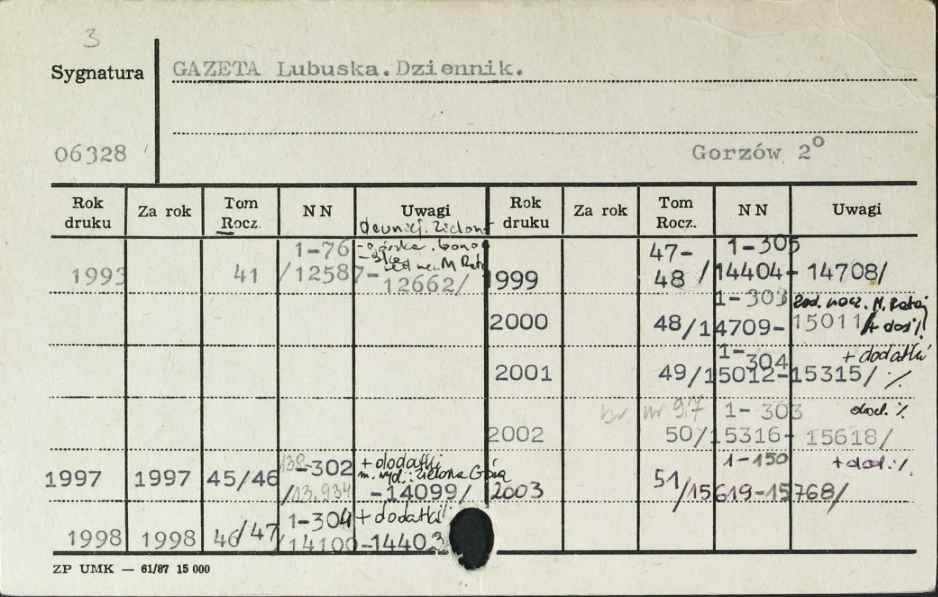 3
Sygnatura GAZETA Lubuska. Dziennik.
06328 Gorzów 2°
Rok druku Za rok Tom Rocz. NN Uwagi Rok druku Za rok Tom Rocz. NN Uwagi
1993 41 1-76 /12587- 12662/
1999 47-48 1-305 /14404-14708/
2000 48 1-303 /14709-15011/ red. nacz. M. Rataj
2001 49 1-304 /15012-15315/ + dodatki %
br nr 97
2002 50 1-303 /15316-15618/ dod. %
1997 1997 45/46 -302 /13.934 -14099/ + dodatki m. wyd.: Zielona Góra
2003 51 1-150 /15619-15768/ + dod. %
1998 1998 46/47 1-304 /14100-14403 + dodatki
ZP UMK — 61/87 15 000